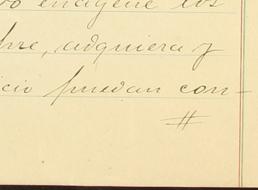 enagene los
bre, adquiera y
cio puedan con-